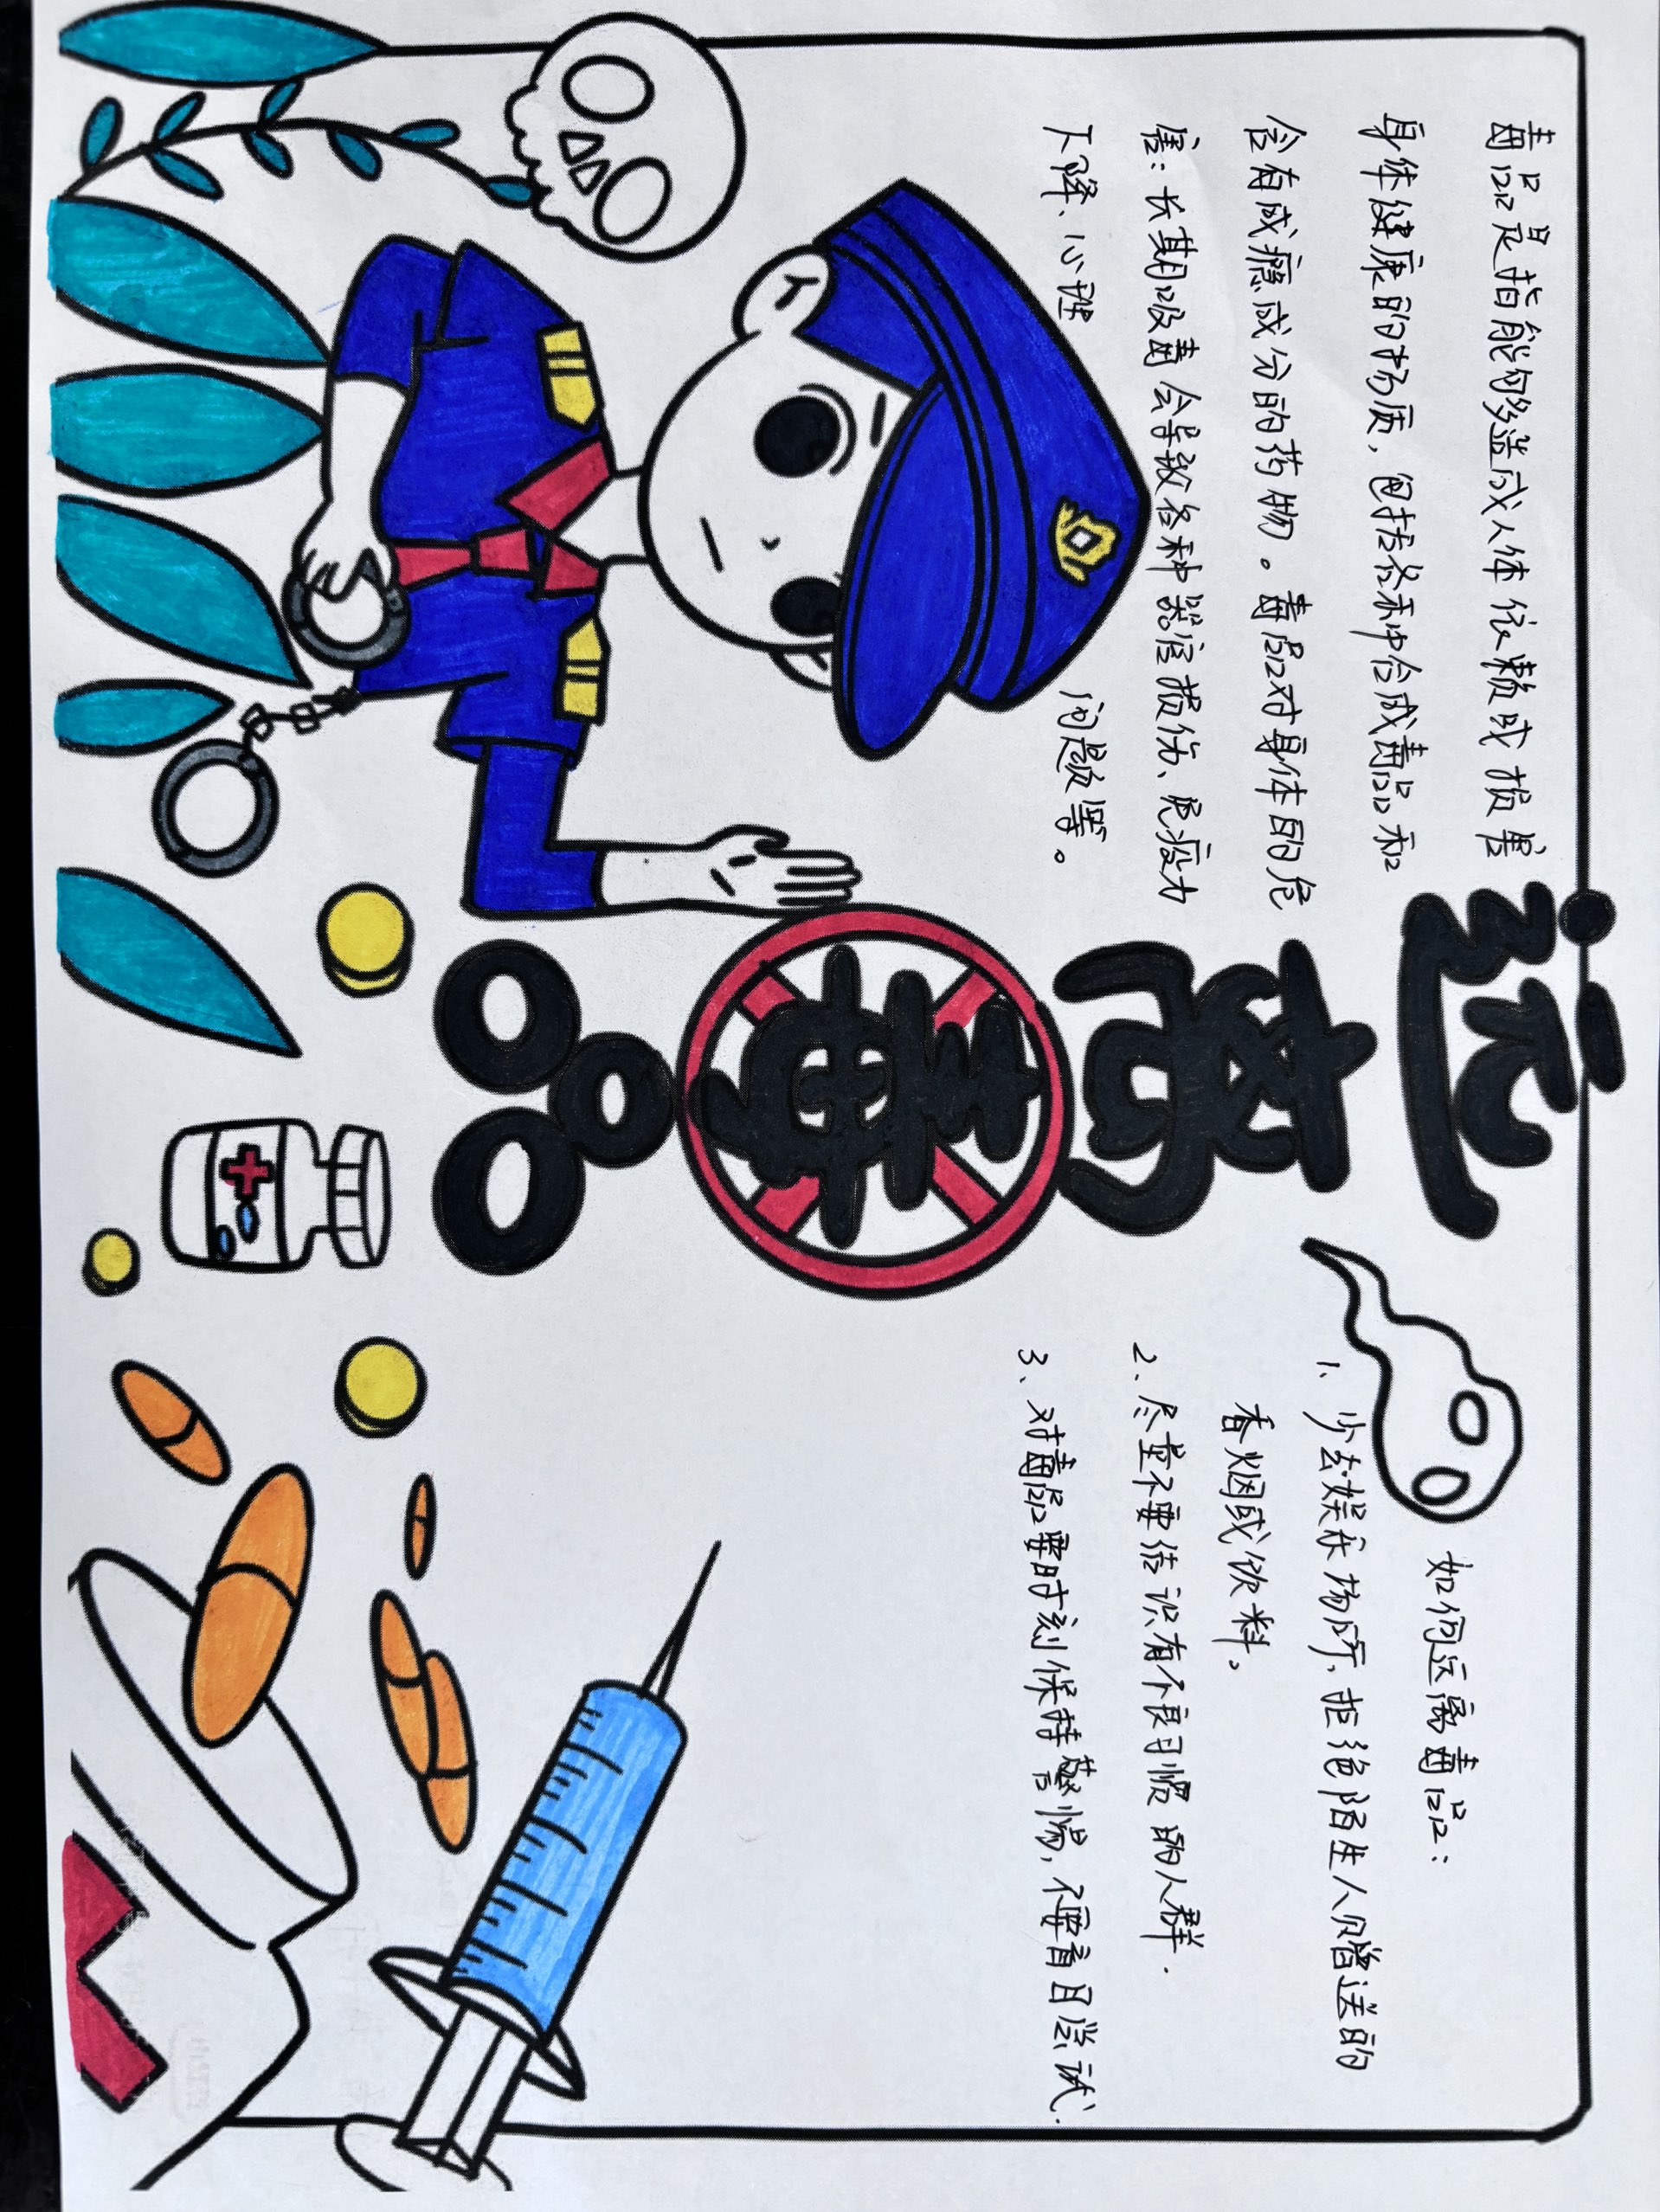 远离毒品
毒品是指能够造成人体依赖或损害
身体健康的物质，包括各种合成毒品和
含有成瘾成分的药物。毒品对身体的危
害：长期吸毒会导致各种器官损伤、免疫力
下降、心理 问题等。
如何远离毒品：
1、少去娱乐场所，拒绝陌生人赠送的
香烟或饮料。
2、尽量不要结识有不良习惯的人群.
3、对毒品要时刻保持警惕，不要盲目尝试.